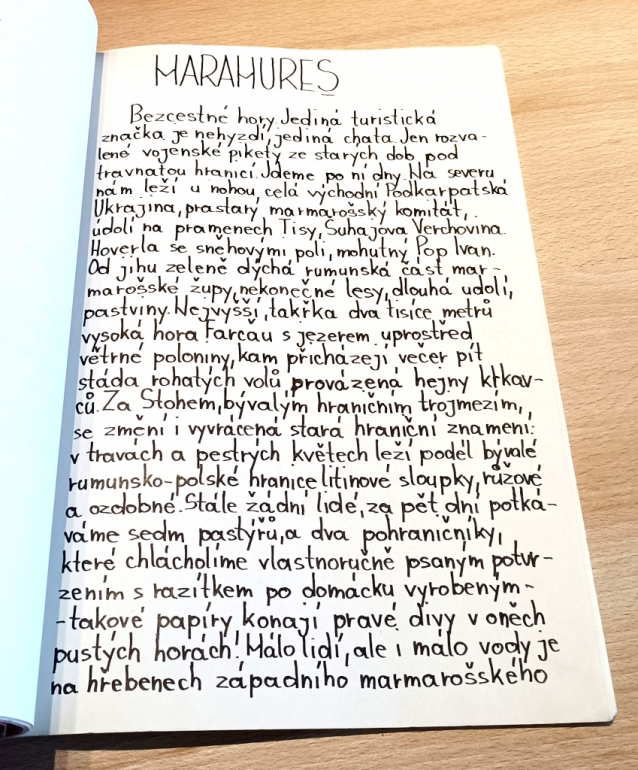 MARAMUREŞ
Bezcestné hory. Jediná turistická
značka je nehyzdí, jediná chata. Jen rozva-
lené vojenské pikety ze starých dob pod
travnatou hranicí. Jdeme po ní dny. Na severu
nám leží u nohou celá východní Podkarpatská
Ukrajina, prastarý marmarošský komitát,
údolí na pramenech Tisy, Šuhajova Verchovina.
Hoverla se sněhovými poli, mohutný Pop Ivan.
Od jihu zeleně dýchá rumunská část mar-
marošské župy, nekonečné lesy, dlouhá údolí,
pastviny. Nejvyšší, takřka dva tisíce metrů
vysoká hora Farcău s jezerem uprostřed
větrné poloniny, kam přicházejí večer pít
stáda rohatých volů provázená hejny krkav-
ců. Za Stohem, bývalým hraničním trojmezím,
se změní i vyvrácená stará hraniční znamení:
v travách a pestrých květech leží podél bývalé
rumunsko-polské hranice litinové sloupky, růžové
a ozdobné. Stále žádní lidé, za pět dní potká-
váme sedm pastýřů, a dva pohraničníky,
které chlácholíme vlastnoručně psaným potvr-
zením s razítkem po domácku vyrobeným-
-takové papíry konají pravé divy v oněch
pustých horách! Málo lidí, ale i málo vody je
na hřebenech západního marmarošského